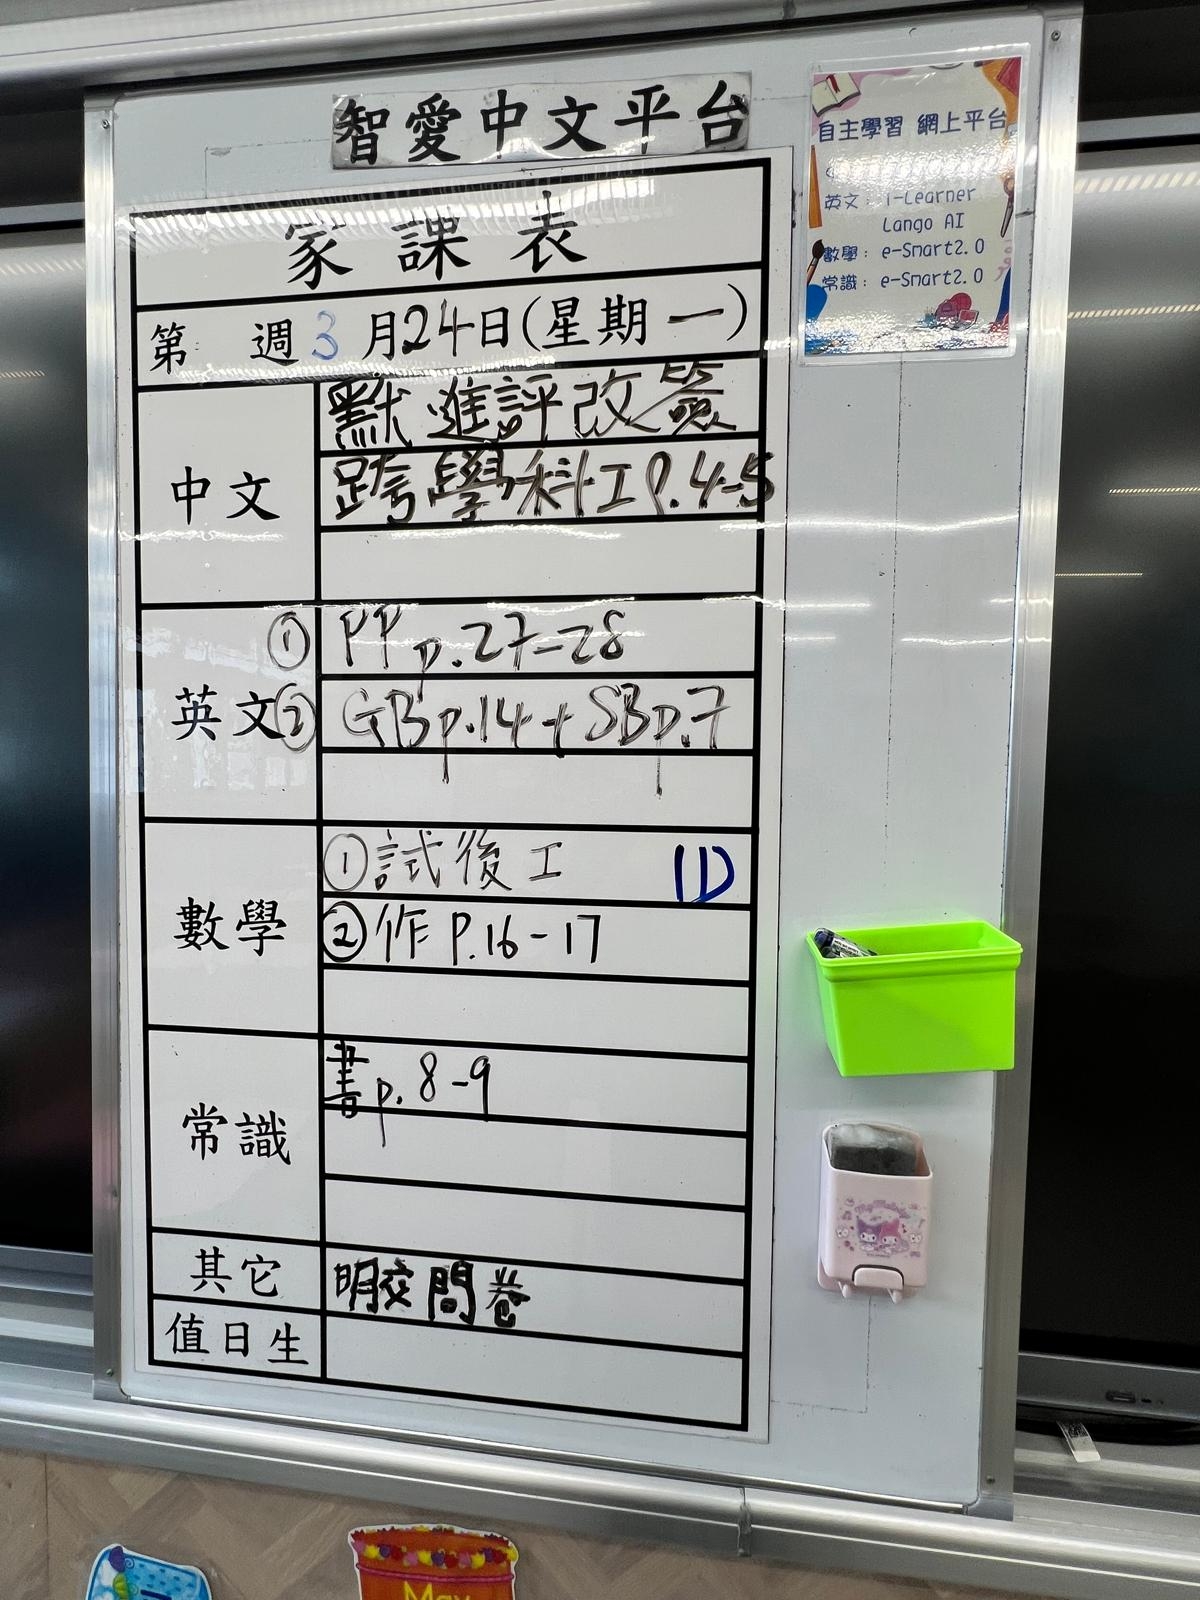 智愛中文平台
自主學習 網上平台
英文: i-Learner
Lango AI
數學: e-Smart2.0
常識: e-Smart2.0
家課表
第 週 3 月 24 日(星期 一)
中文
默進評改簽
跨學科工P.4-5
英文
① PP p.27-28
② GB p.14 + SB p.7
數學
①試後工 (1)
②作 P.16-17
常識
書p. 8-9
其它
明交問卷
值日生
May